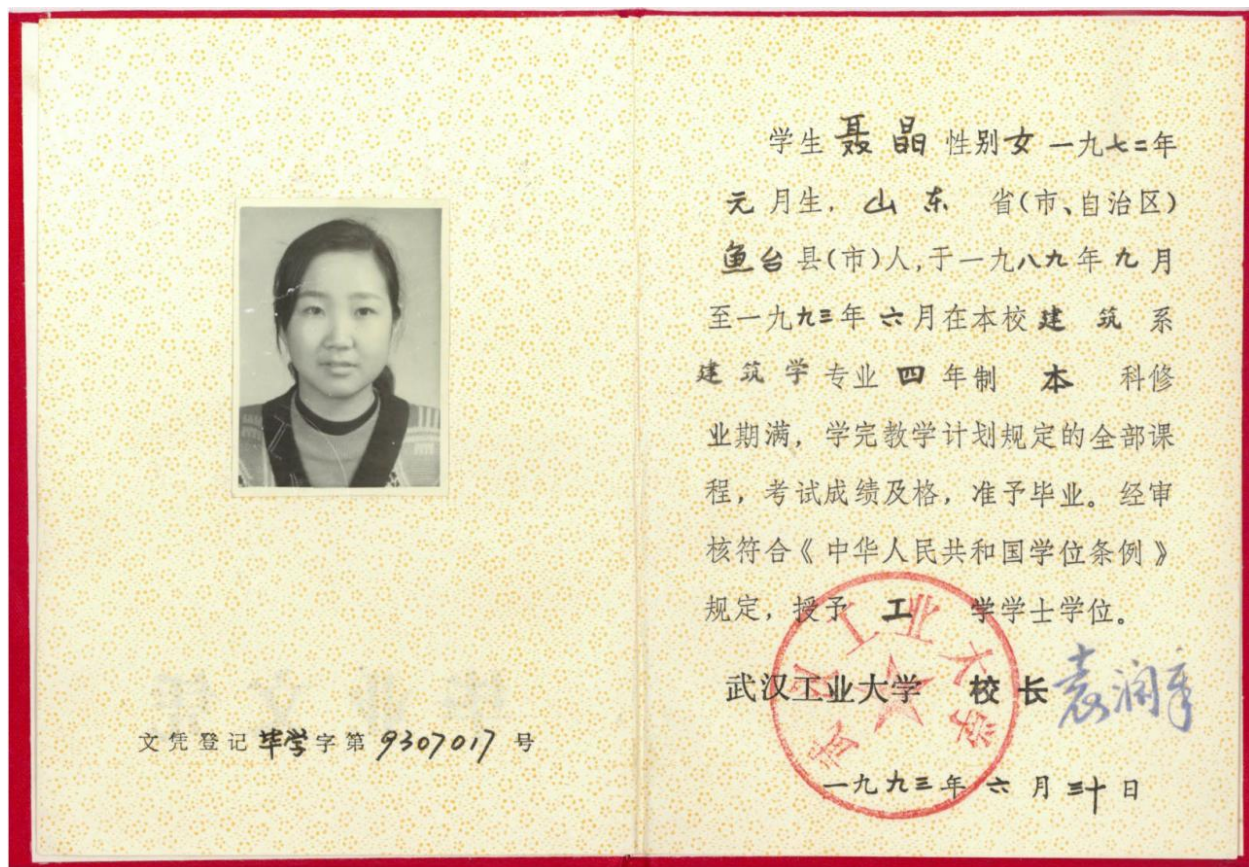 文凭登记毕学字第9307017号
学生聂晶性别女一九七二年
元月生，山东省(市、自治区)
鱼台县(市)人,于一九八九年九月
至一九九三年六月在本校建筑系
建筑学专业四年制本科修
业期满，学完教学计划规定的全部课
程，考试成绩及格，准予毕业。经审
核符合《中华人民共和国学位条例》
规定，授予工学学士学位。
武汉工业大学校长袁润章
武汉工业大学
一九九三年六月三十日